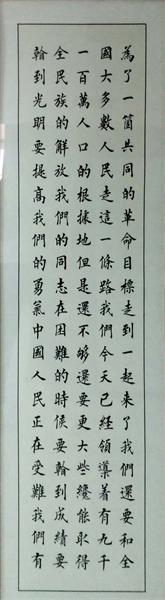 為了一箇共同的革命目標走到一起來了我們還要和全
國大多數人民走這一條路我們今天已經領導着有九千
一百萬人口的根據地但是還不够還要更大些纔能取得
全民族的解放我們的同志在困難的時候要看到成績要
看到光明要提高我們的勇氣中國人民正在受難我們有